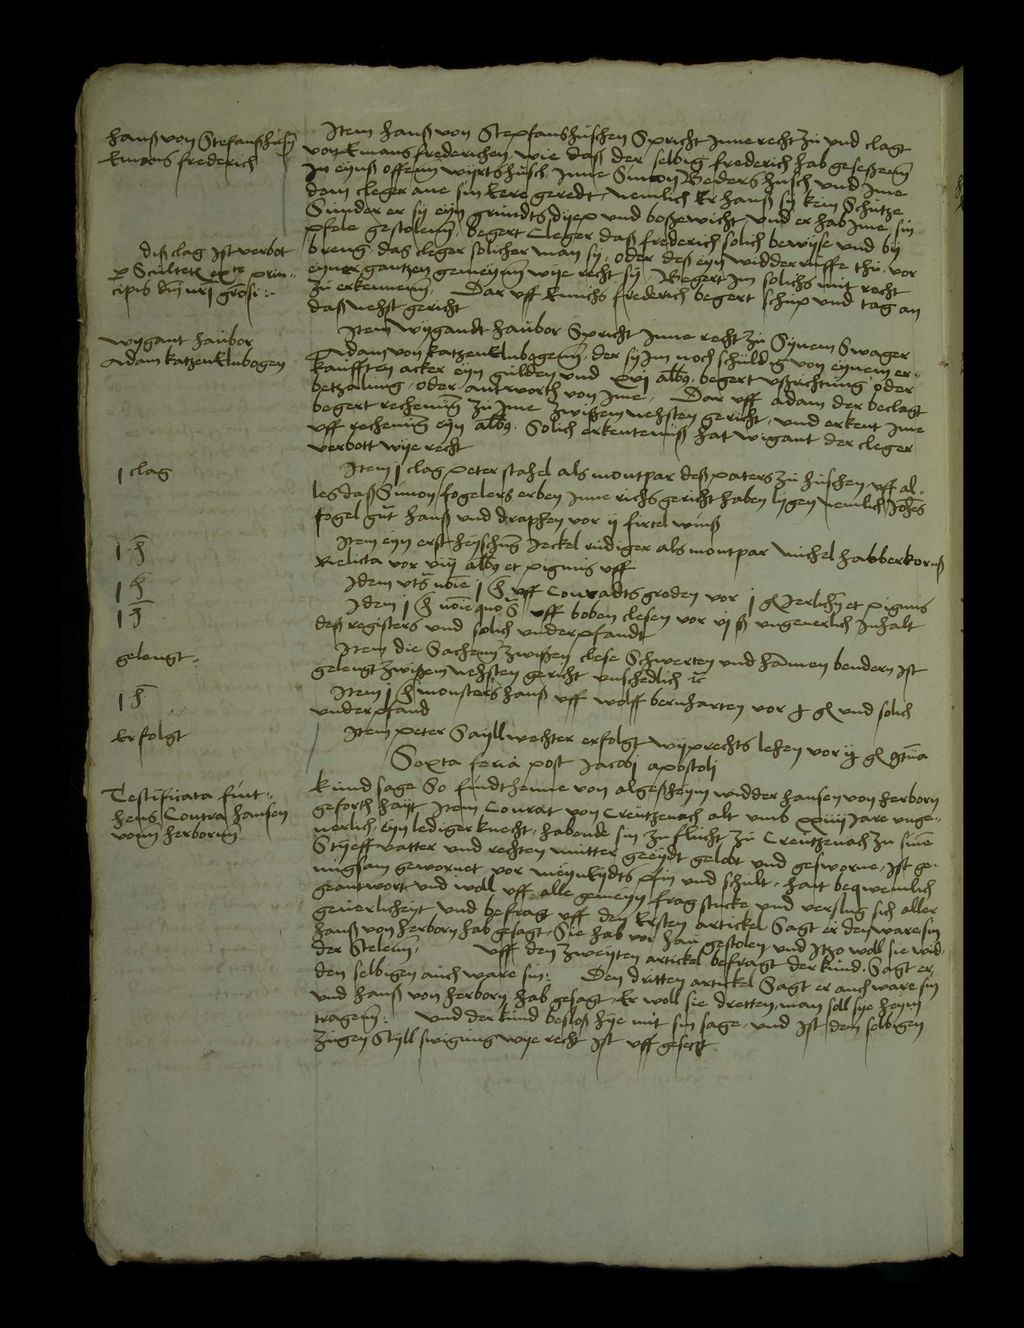 Hanß von Steffanßhußen
Emans Frederich
Item Hanß von Stepfanshuschen spricht inne recht zu und clagt
von Emans Frederichen, wie daß der selbig Frederich hab geseßenn
in eynß offenn wirtshusch, inne Simon Beders husch und ime
dem cleger ane sin eere geredt, nemlich er Hanß sy kein schutze
sunder er sy eyn gruntsdyep und boßewicht und er hab ime sin
pfele gestolenn, begert cleger daß Frederich solich bewyse und by
breng, das cleger solicher man sy, oder deß eyn widderruffe thu, vor
eyner gantzen gemeynn wye recht sy. Begert im solichs mit recht
zu erkennenn. Dar uff Emichs Frederich begert schup und tag an
daß nehst gericht
diß clag ist verbot
p Scultetum ex pte prin-
cipis dni nri grosi :-
Wygant Haubor
Adam Katzenelnbogen
Item Wygandt Haubor spricht inne recht zu synem swager
Adam von Katzenelnbogenn, der sy im noch schuldig von eynem er-
kaufften acker eyn gulden und xvj alb9, begert ußrichtung oder
betzalung, oder antworth von ime. Dar uff Adam der beclagt
begert rechenung zu ime zwißem nehsten gericht, und erkent ime
uff rechenung eyn alb9. Solich erkenteniß hat Wigant der cleger
verbott wye recht
j clag
Item j clag Peter Stahel als montpar deß paters zu Huschen, uff al-
les daß Simon Fogelers erben inne richs gericht haben lygen nemlich Johes
Fogel gut Hanß und draphen vor ij firtel winß
j h
Item eyn erst heyschung Jeckel Rudiger als montpar Michel Habberkornß
Relicta vor viij alb9 et pignus uff
j h
Idem uts noie j h uff Conradts Greden vor j gl jerlichn et pignus
j h
Idem j h noie quo s uff Boben Clesen vor vj ß ungeverlich inhalt
deß registers und solich underpfandt
gelengt :
Item die sachenn zwißen Clese Schwerten und Hamen Bendern ist
gelengt zwißen nehsten gericht unschedlich etc
j h
Item j h Monsters Hanß uff Wolff Bernharten vor j gl und solich
underpfand
Erfolgt
Item Peter Snyllwechter erfolgt Wyprechts Lehen vor ij gl
Sexta feria post Jacobi apostoli
Testificata Fint-
hens Contra Hansen
vonn Herbornn
Kund sage so Findthenne von Algeßheym widder Hansen von Herborn
geforth hayt. Item Conrat von Creutzenach alt umb xxiiij jare unge-
verlich, eyn lediger knecht, habende sin zuflucht zu Creutzenach zu sine
styeffvatter und rechten mutter geeydt gelobt und gesworne, ist ge-
nugsam gewornet vor meyneydts pyn und schult, hait beqwemlich
geantwort und woll uff alle gemeyn fragstucke und verslug sich aller
geverlicheyt und befragt uff den ersten artickel. Sagt er den ware sin
Hanß von Herborn hab gesagt, sie hab vor han gestolen und itzo woll sie wid-
der stelenn. Uff den zweyten artickel befragt der kund. Sagt er,
den selbigen auch ware sin: Den dritten artickel sagt er auch ware sin
und Hanß von Herborn hab gesagt, er woll sie dretten, man soll sye heym
tragenn: Und der kund besloß hye mit sin sage, und ist den selbigen
zugen styllswigung wye recht ist uff gesetzt